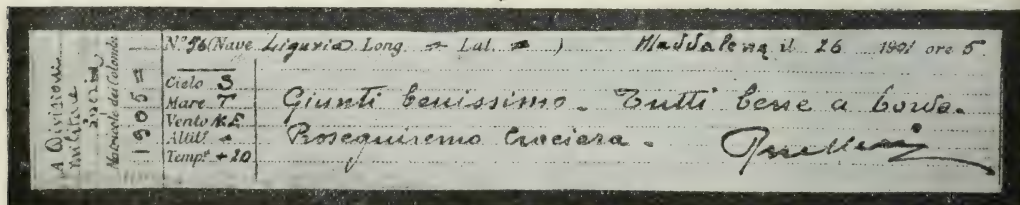 A Divisioni
militare
Matricole dei Colombi
1905
N.º 56 (Nave Liguria Long. = Lat. = )
Maddalena il 26 1901 ore 5
Cielo S
Mare T
Vento N.E
Altit. =
Temp.ª + 20
Giunti benissimo. Tutti bene a bordo.
Proseguiremo Crociera.